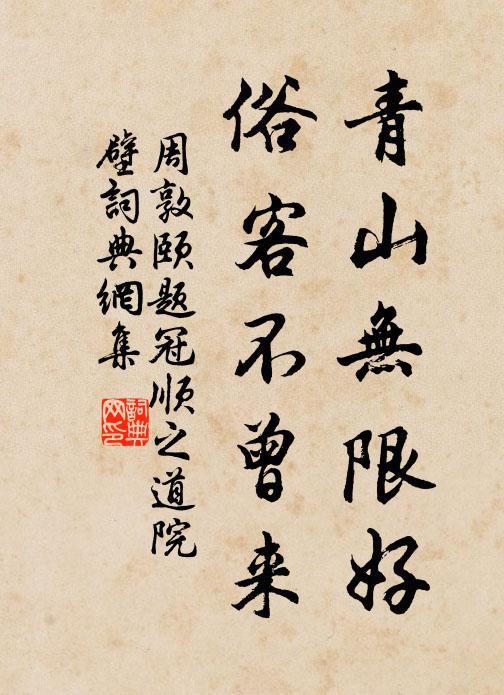 青山無限好
俗客不曾来
周敦頤題冠順之道院
壁詞典網集
詞典网印